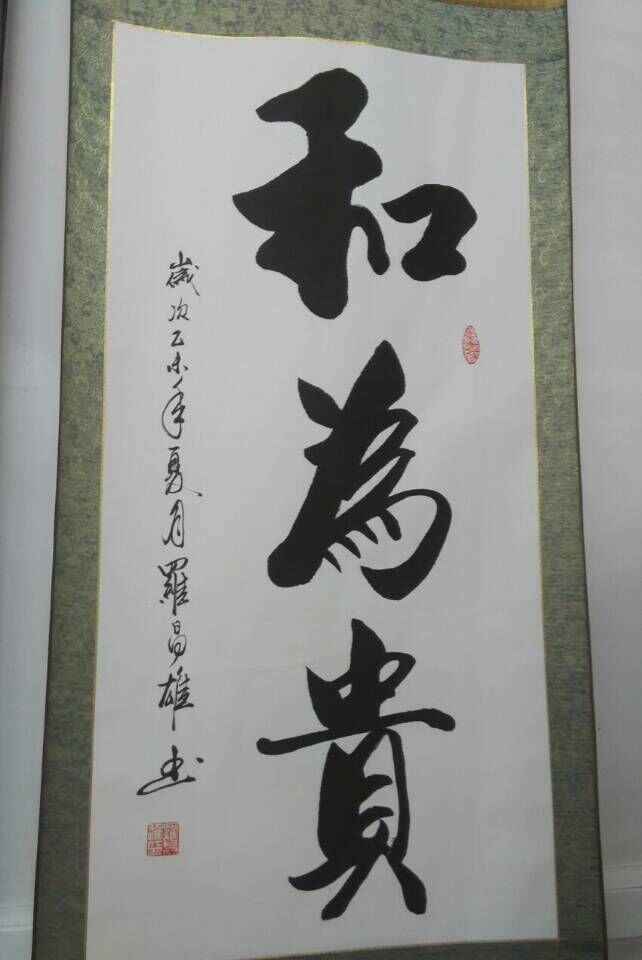 和為貴
歲次乙未年夏月羅昌雄书